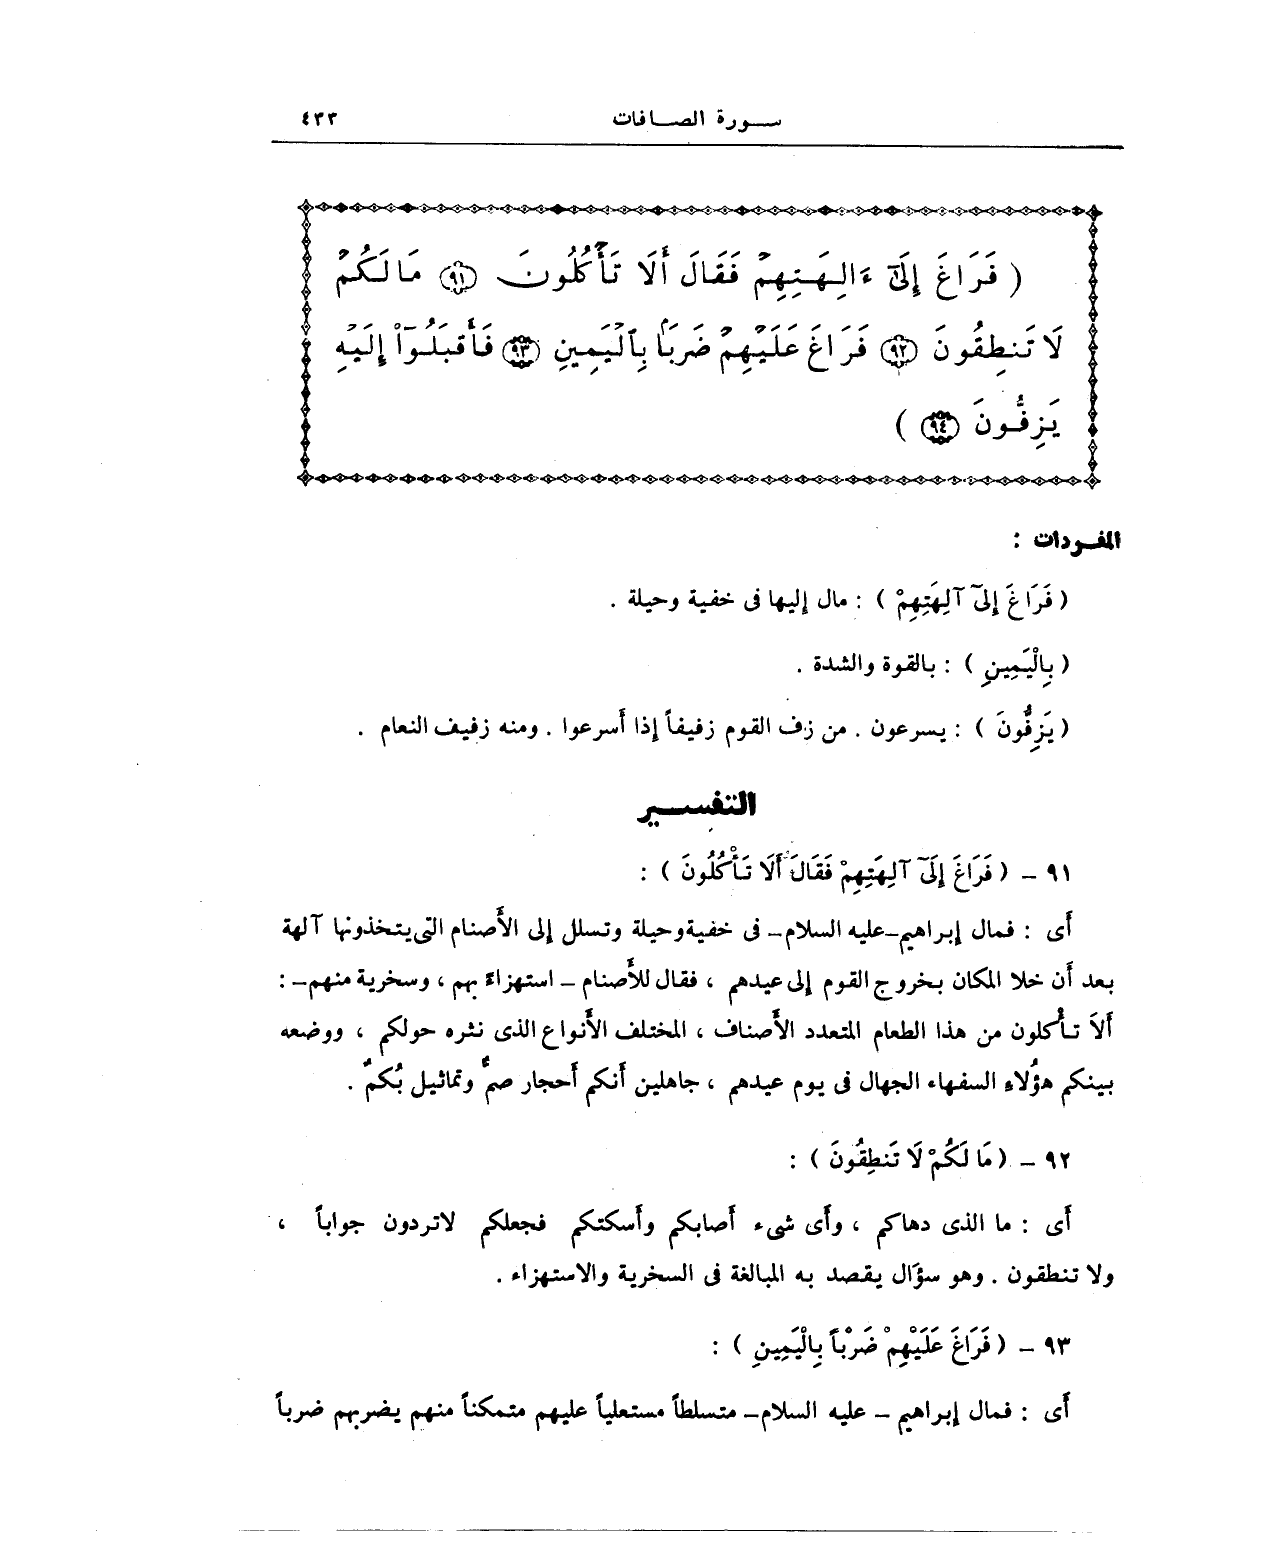 سورة الصافات ٤٣٣
( فَرَاغَ إِلَىٰٓ ءَالِهَتِهِمْ فَقَالَ أَلَا تَأْكُلُونَ ٩١ مَا لَكُمْ
لَا تَنطِقُونَ ٩٢ فَرَاغَ عَلَيْهِمْ ضَرْبًۢا بِٱلْيَمِينِ ٩٣ فَأَقْبَلُوٓا۟ إِلَيْهِ
يَزِفُّونَ ٩٤ )
المفردات :
( فَرَاغَ إِلىَٓ آلِهَتِهِمْ ) : مال إليها فى خفية وحيلة .
( بِالْيَمِينِ ) : بالقوة والشدة .
( يَزِفُّونَ ) : يسرعون . من زف القوم زفيفاً إذا أَسرعوا . ومنه زفيف النعام .
التفسير
٩١ – ( فَرَاغَ إِلَىٓ آلِهَتِهِمْ فَقَالَ أَلَا تَأْكُلُونَ ) :
أَى : فمال إبراهيم –عليه السلام– فى خفية وحيلة وتسلل إلى الأَصنام التى يتخذونها آلهة
بعد أَن خلا المكان بخروج القوم إلى عيدهم ، فقال للأَصنام – استهزاءً بهم ، وسخرية منهم– :
أَلاَ تأْكلون من هذا الطعام المتعدد الأَصناف ، المختلف الأَنواع الذى نثره حولكم ، ووضعه
بينكم هؤُلاءِ السفهاء الجهال فى يوم عيدهم ، جاهلين أَنكم أَحجار صمٌّ وتماثيل بُكمٌ .
٩٢ – ( مَا لَكُمْ لَا تَنطِقُونَ ) :
أَى : ما الذى دهاكم ، وأَى شىء أَصابكم وأَسكتكم فجعلكم لاتردون جواباً ،
ولا تنطقون . وهو سؤَال يقصد به المبالغة فى السخرية والاستهزاء .
٩٣ – ( فَرَاغَ عَلَيْهِمْ ضَرْباً بِالْيَمِينِ ) :
أَى : فمال إبراهيم – عليه السلام– متسلطاً مستعلياً عليهم متمكناً منهم يضربهم ضرباً